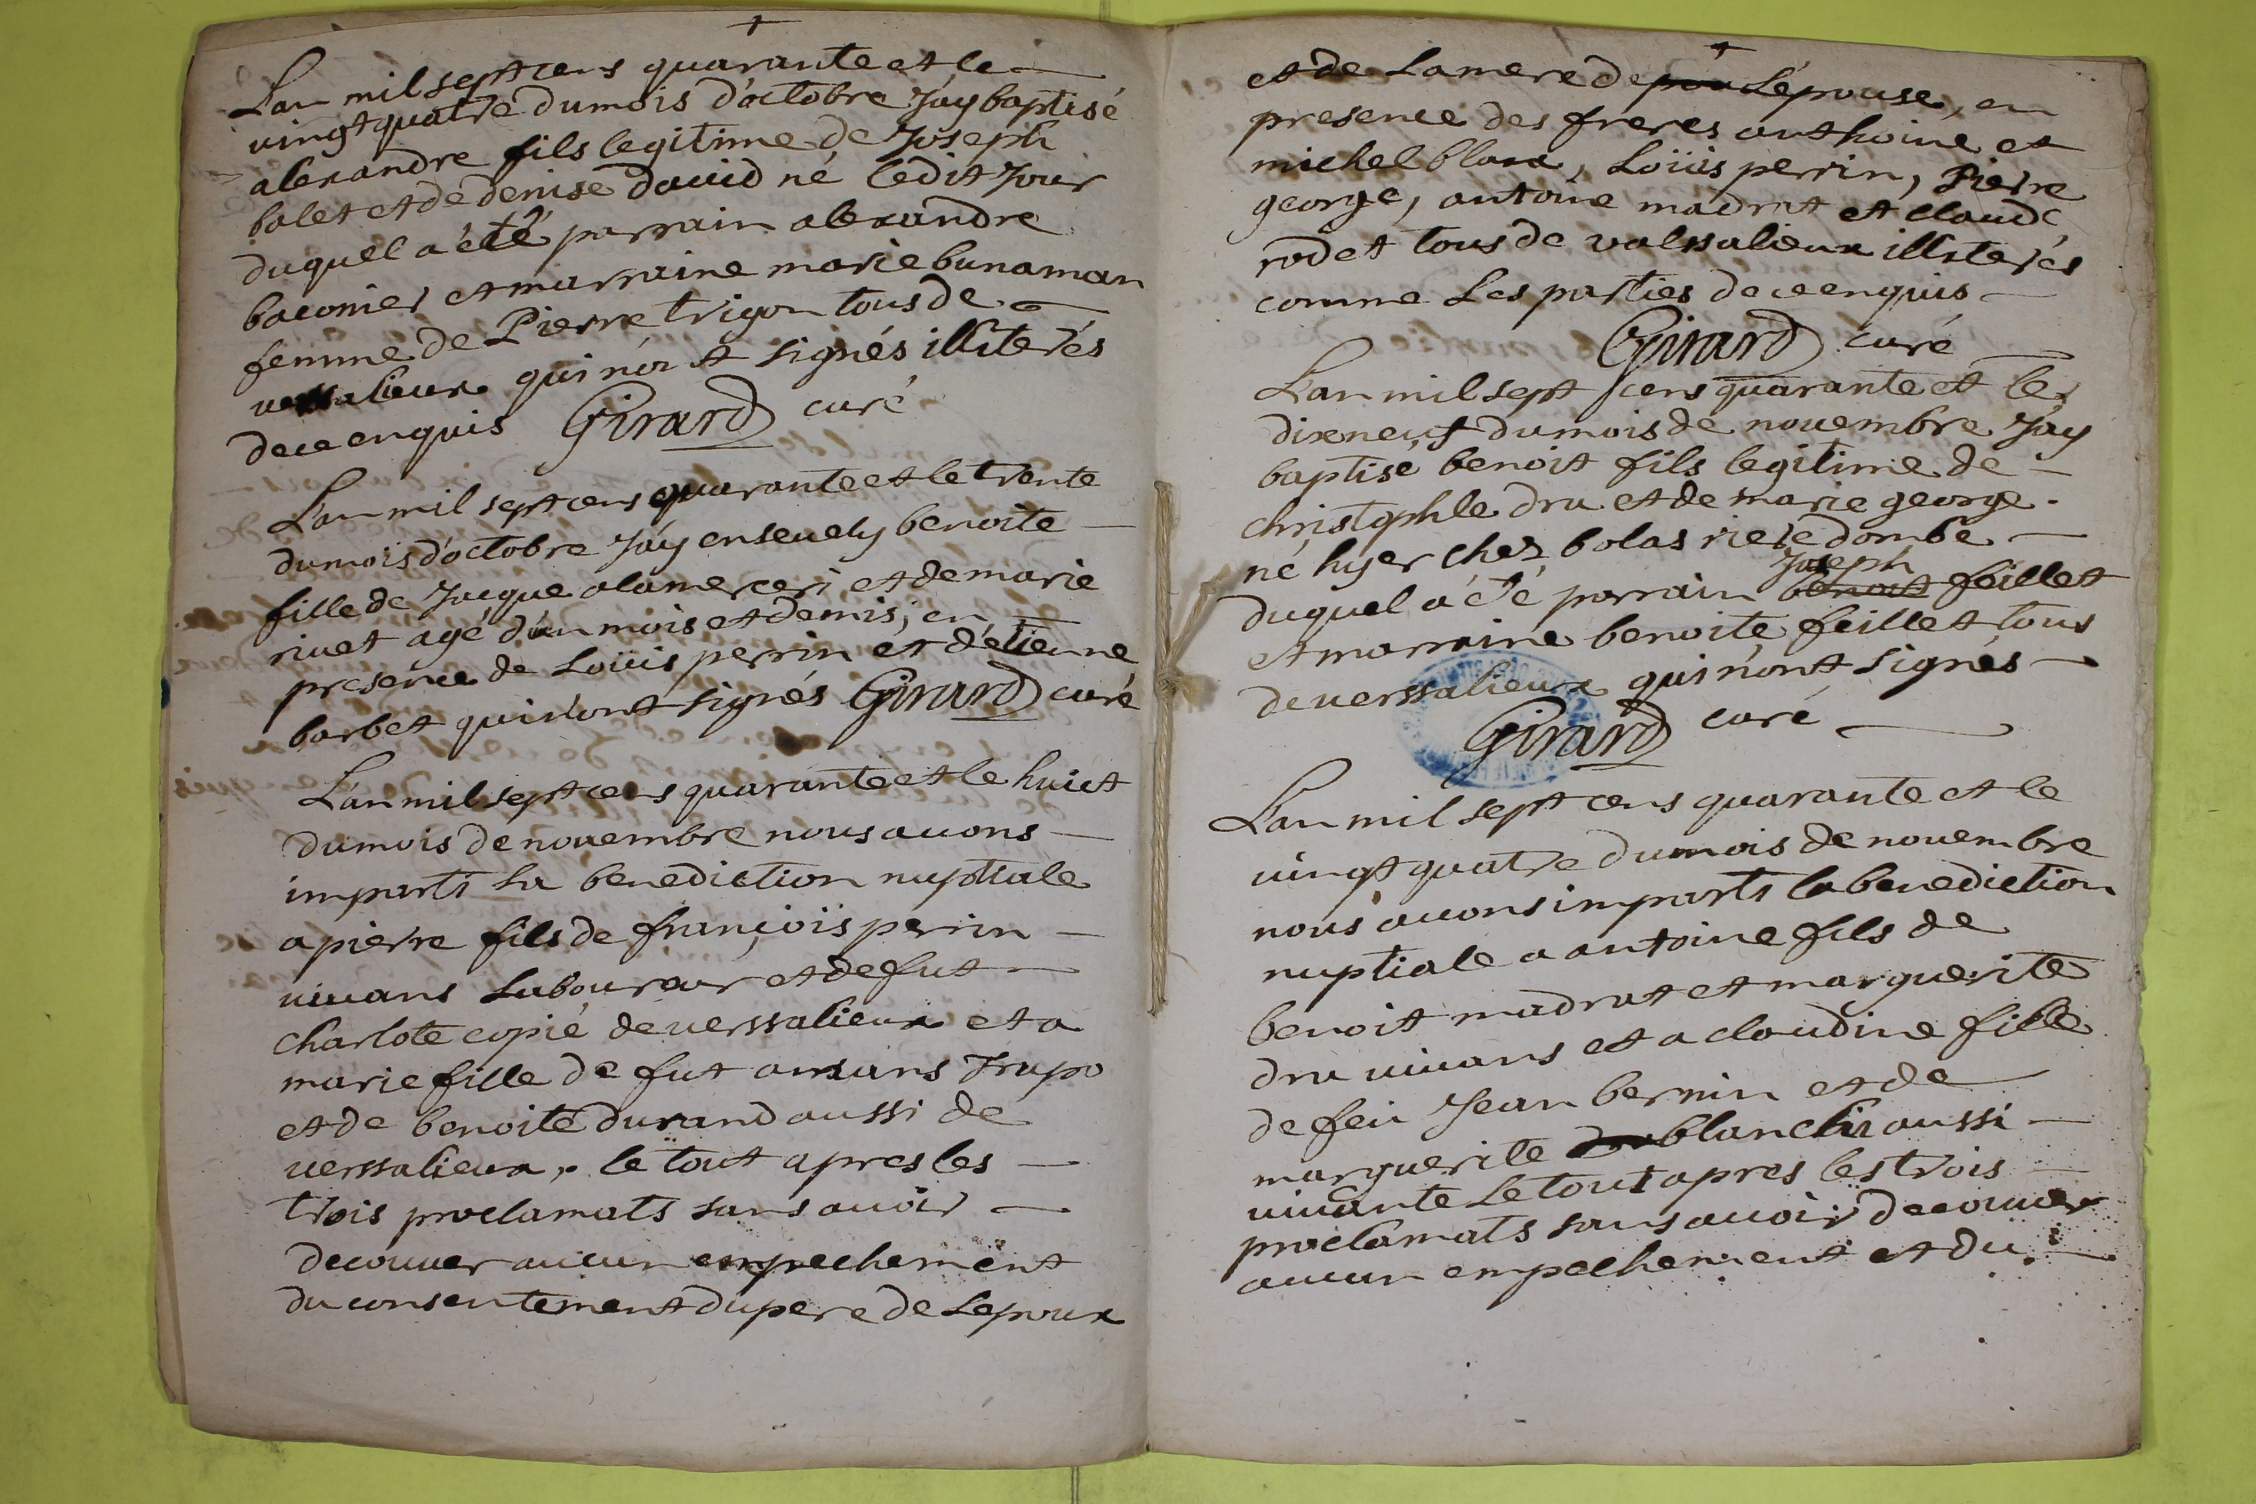 L'an mil sept cens quarante et le
vingt quatre du mois d'octobre J'ay baptisé
alexandre fils legitime de Joseph
bolet et de denise david né ledit Jour
duquel a été parrain alexandre
baconier et marraine marie bunaman
femme de Pierre trigon tous de
verssalieux qui n'ont signés illiterés
de ce enquis Girard curé
L'an mil sept cens quarante et le trente
du mois d'octobre J'ay ensevely benoite
fille de Jacque alamerceri et de marie
rivet agé d'un mois et demis, en
presence de Loüis perrin et d'etienne
barbet qui n'ont signés Girard curé
L'an mil sept cens quarante et le huict
du mois de novembre nous avons
imparti la benediction nuptiale
a pierre fils de françois perrin
vivans Laboureur et de fut
charlote copié de verssalieux et a
marie fille de fut Trapo
et de benoite durand aussi de
verssalieux, le tout apres les
trois proclamats sans avoir
decouver aucun empechement
du consentement du pere de Lepoux
et de La mere de Lépouse, en
presence des freres anthoine et
michel blanc, Loüis perrin, Pierre
george, antoine madrat et claude
rodet tous de valssalieux illiterés
comme Les parties de ce enquis
Girard curé
L'an mil sept cens quarante et le
dixneuf du mois de novembre J'ay
baptisé benoit fils legitime de
christophle dru et de marie george
né hyer chez bolas riere dombe
Joseph
duquel a été parrain benoit feillet
et marraine benoite feillet tous
de verssalieux qui n'ont signés
Girard curé
L'an mil sept cens quarante et le
vingt quatre du mois de novembre
nous avons imparti la benediction
nuptiale a antoine fils de
benoit madrat et marguerite
dru vivans et a claudine fille
de feu Jean bernin et de
marguerite dru blanchin aussi
vivante Le tout apres les trois
proclamats sans avoir decouver
aucun empechement et du